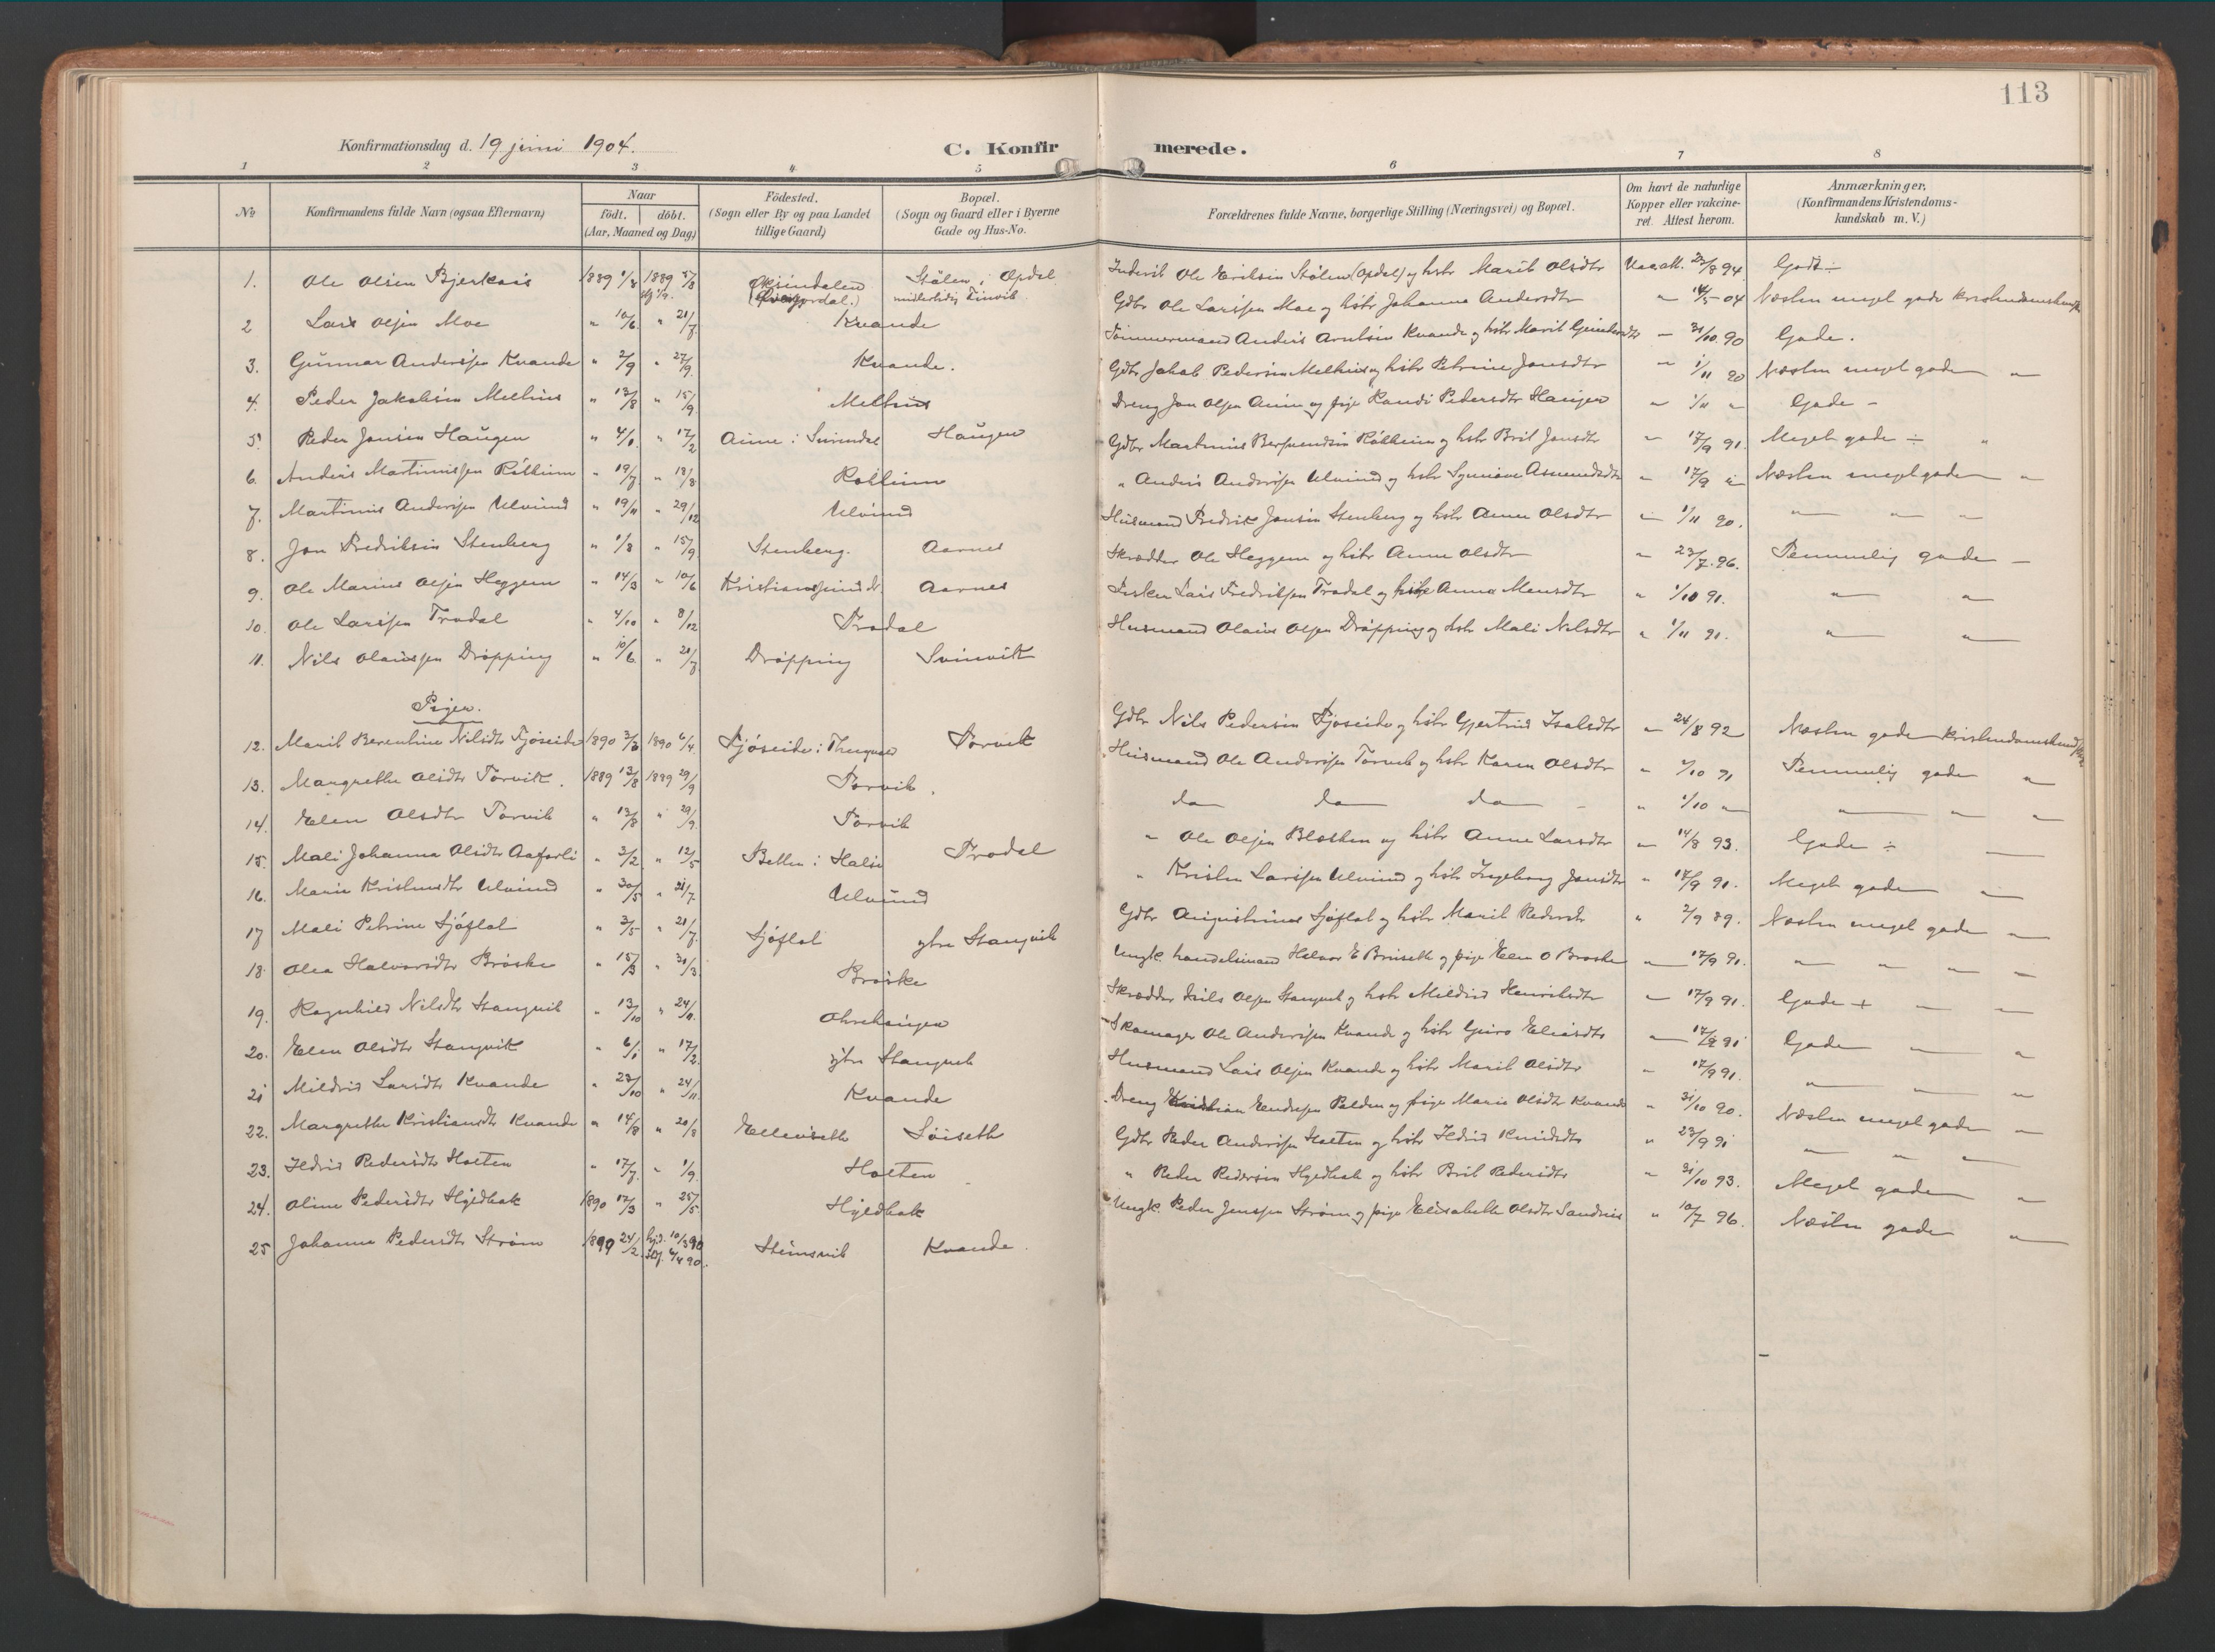 113
Konfirmationsdag d. 19 juni 1904.
C. Konfirmerede.
1 2 3 4 5 6 7 8
No
Konfirmandens fulde Navn (ogsaa Efternavn)
Naar
födt. döbt.
(Aar, Maaned og Dag)
Födested.
(Sogn eller By og paa Landet
tillige Gaard)
Bopæl.
(Sogn og Gaard eller i Byerne
Gade og Hus-No.
Forældrenes fulde Navne, borgerlige Stilling (Næringsvei) og Bopæl.
Om havt de naturlige
Kopper eller vakcine-
ret. Attest herom.
Anmærkninger.
(Konfirmandens Kristendoms-
kundskab m. V.)
1. Ole Olsen 1889 1/8 1889 Stölen i Opdal Ole Eriksen Stölen (Opdal) og hstr Marit Olsdtr Vac att. 94 Godt ÷
midlertidig
2 Lars Olsen Moe " 10/6 " 21/7 Kvande Gdbr Ole Larssen Moe og hstr Johanna Andersdtr " 14/5 04 Næsten meget gode
3. Gunnar Anderssen Kvande " 2/9 " 27/9 Kvande. Tömmermand Anders Arntsen Kvande og hstr Marit " 31/10 90 Gode.
4. Peder Jakobsen Melhus " 13/8 " 15/9 Melhus Gdbr Jakob Pedersen Melhus og hstr Petrine Jonsdtr " 1/11 90 Næsten meget gode "
5. Peder Jonsen Haugen " 4/1 " 17/2 Aune i Surendal Haugen Dreng Jon Olsen Aune og pige Randi Pedersdtr Haugen " 1/11 " Gode -
6. Anders Martinussen Röttum " 19/7 " 18/8 Gdbr Martinus og hstr Brit Jonsdtr " 17/9 91. Meget gode ÷ "
7. Martinus Anderssen Ulvund " 19/11 " 29/12 Ulvund " Anders Anderssen Ulvund og hstr Synnöve Asmundsdtr " 17/9 Næsten meget gode "
8. Jon Fredriksen Stenberg " 1/8 " 15/9 Stenberg. Aarnes Husmand Fredrik Jonsen Stenberg og hstr Anne Olsdtr " 1/11 90. " " "
9. Ole Marius Olsen Heggem " 14/3 " 10/6 Kristianssund Aarnes Skrædder Ole Heggem og hstr Anne Olsdtr " 23/7 96. Temmelig gode -
10. Ole Larssen Trodal " 4/10 " 8/12 Trodal Fisker Lars Fredriksen Trodal og hstr Anna " 1/10 91. " "
11. Nils Olaussen Dröpping " 10/6 " 21/7 Dröpping Svinvik Husmand Olaus Olsen Dröpping og hstr Mali Nilsdtr " 1/11 91. " "
Piger.
12. Marit Berentine Nilsdtr Fjöseide 1890 3/3 1890 6/4 Fjöseide i Torvik Gdbr Nils Pedersen Fjöseide og hstr Gjertrud " 24/8 92 Næsten gode
13. Margrethe Olsdtr Torvik. 1889 13/8 1889 29/9 Torvik. Husmand Ole Anderssen Torvik og hstr Karen Olsdtr " 1/10 91 Temmelig gode "
14. Elen Olsdtr Torvik " 13/8 " 29/9. Torvik do do do - " 1/10 " " " "
15. Mali Johanna Olsdtr " 3/2 " 12/5 i Halse Trodal " Ole Olsen og hstr Anne Larsdtr " 14/8 93. Gode ÷ —
16. Marie Kristensdtr Ulvund " 30/5 " 21/7. Ulvund " Kristen Larssen Ulvund og hstr Ingeborg Jonsdtr " 17/9 91. Meget gode "
17 Mali Petrine Sjöflot " 3/5 " 21/7. Sjöflot ytre Stangvik Gdbr Augustinus Sjöflot og hstr Marit Pedersdtr " 2/9 89. Næsten meget gode "
18. Olea Halvorsdtr Bröske " 15/3 " 31/3. Bröske Ungk. handelsmand Halvor E Bruseth og pige Elen O Broske " 17/9 91. " " " "
19. Ragnhild Nilsdtr Stangvik " 13/10 " 24/11. Skrædder Nils Olsen Stangvik og hstr Mildrid Henriksdtr " 17/9 91. Gode + " "
20. Elen Olsdtr Stangvik " 6/1 " 17/2. ytre Stangvik Skomager Ole Anderssen Kvande og hstr Guro Eliasdtr " 17/9 91 Gode " "
21 Mildrid Larsdtr Kvande " 23/10 " 24/11. Kvande Husmand Lars Olsen Kvande og hstr Marit Olsdtr " 17/9 91. " " "
22. Margrethe Kristiansdtr Kvande " 14/8 " 20/8 Söiseth Dreng Kristian Endresen og pige Marie Olsdtr Kvande " 31/10 90. Næsten meget gode "
23. Ildrid Pedersdtr Holten " 17/7. " 1/9. Holten Gdbr Peder Anderssen Holten og hstr Ildrid Knudsdtr " 23/9 91 " " "
24. Oline Pedersdtr 1890 17/3 " 25/5. " Peder Pedersen og hstr Brit Pedersdtr " 31/10 93. Meget gode "
25 Johanna Pedersdtr Ström 1890 24/2. hjd. 10/3 90 Stensvik Kvande. Ungk. Peder Jenssen Ström og pige Elisabeth Olsdtr Sandnes " 10/7 96. Næsten gode "